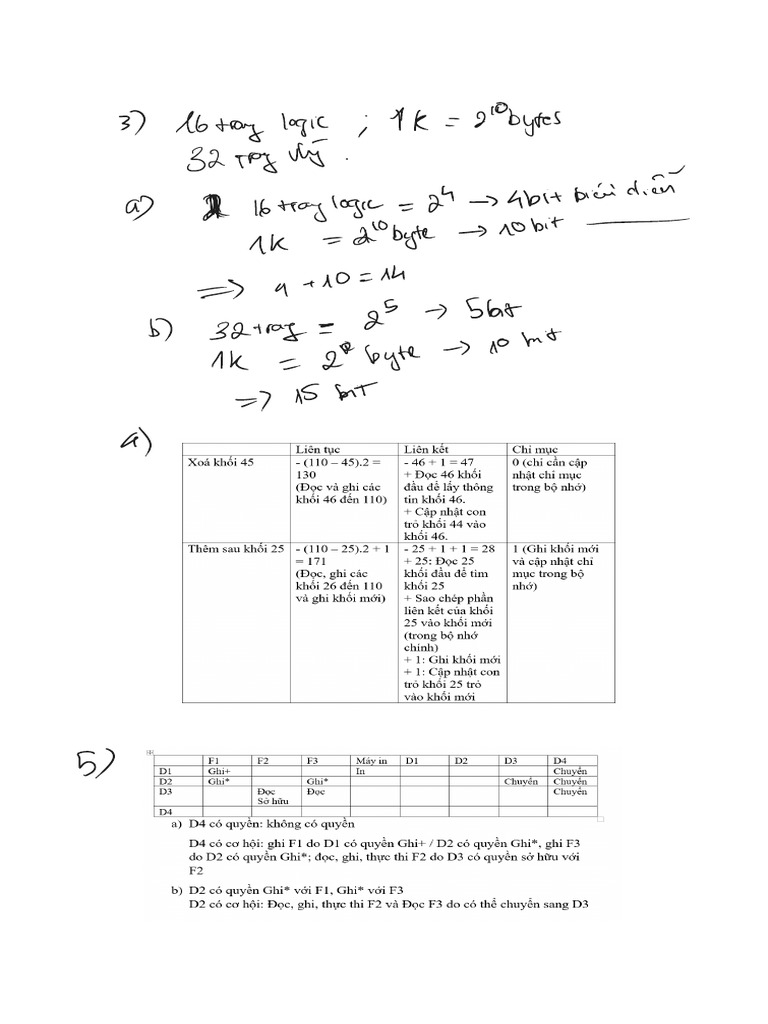 3) 16 trang logic ; 1K = 2^10 bytes
32 trang vlý.
a) 16 trang logic = 2^4 → 4bit biểu diễn
1K = 2^10 byte → 10 bit
=> 4 + 10 = 14
b) 32 trang = 2^5 → 5bit
1K = 2^10 byte → 10 bit
=> 15 bit
4)
Liên tục Liên kết Chỉ mục
Xoá khối 45 - (110 – 45).2 = - 46 + 1 = 47 0 (chỉ cần cập
130 + Đọc 46 khối nhật chỉ mục
(Đọc và ghi các đầu để lấy thông trong bộ nhớ)
khối 46 đến 110) tin khối 46.
+ Cập nhật con
trỏ khối 44 vào
khối 46.
Thêm sau khối 25 - (110 – 25).2 + 1 - 25 + 1 + 1 = 28 1 (Ghi khối mới
= 171 + 25: Đọc 25 và cập nhật chỉ
(Đọc, ghi các khối đầu để tìm mục trong bộ
khối 26 đến 110 khối 25 nhớ)
và ghi khối mới) + Sao chép phần
liên kết của khối
25 vào khối mới
(trong bộ nhớ
chính)
+ 1: Ghi khối mới
+ 1: Cập nhật con
trỏ khối 25 trỏ
vào khối mới
5)
F1 F2 F3 Máy in D1 D2 D3 D4
D1 Ghi+ In Chuyển
D2 Ghi* Ghi* Chuyển Chuyển
D3 Đọc Đọc Chuyển
Sở hữu
D4
a) D4 có quyền: không có quyền
D4 có cơ hội: ghi F1 do D1 có quyền Ghi+ / D2 có quyền Ghi*, ghi F3
do D2 có quyền Ghi*; đọc, ghi, thực thi F2 do D3 có quyền sở hữu với
F2
b) D2 có quyền Ghi* với F1, Ghi* với F3
D2 có cơ hội: Đọc, ghi, thực thi F2 và Đọc F3 do có thể chuyển sang D3